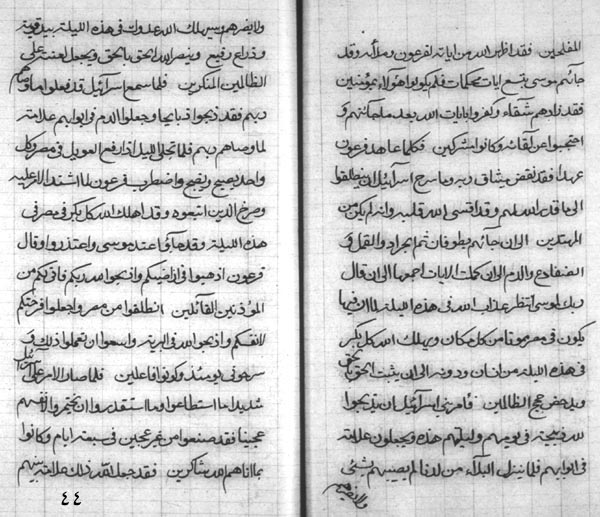 المفلحين فقد اظهر الله من اياته لفرعون وملائه وقد
جائهم موسى بتسع ايات محكمات فلم يكونوا هؤلاء بمؤمنين
فقد زادهم شقاء وكفروا بايات الله بعد ما جائتهم و
احتجبوا عن لقائه وكانوا مشركين فكلما عاهد فرعون
عهدا فقد نقض ميثاق ربه وما سرح اسرآئيل ان ينطلقوا
الى ما قدر الله لهم وقد اقسى الله قلبه وانه لم يكن من
المهتدين الى ان جائهم بطوفان ثم بجراد والقمل و
الضفادع والدم الى ان كملت الايات اجمعها الى ان قال
ربك لموسى انتظر عذاب الله في هذه الليلة لما ان فيها
يكون في مصر موتا من كل مكان ويهلك الله كل بكر
في هذه الليلة من انسان ودونه الى ان يثبت الحق بالحق
ويدحض حجج الظالمين فأمر بني اسرآئيل ان يذبحوا
لله ذبيحة في يومهم وليلتهم هذه ويجعلون علامته
في ابوابهم فلما ينزل البلآء من لدنا لم يصيبهم شئ
ولا يضرهم
ولا يضرهم وسيهلك الله عدوك في هذه الليلة بيد قوية
وذراع رفيع وينصر الله الحق بالحق ويجعل لعنته على
الظالمين المنكرين فلما سمع اسرآئيل قد فعلوا ما وصاهم
ربهم فقد ذبحوا ذبايحا وجعلوا الدم في ابوابهم علامته
لما وصاهم ربهم فلما تجلى الليل اذا رفع العويل في مصر وكل
واحد يصيح ويضج واضطرب فرعون لما اشتد الامر عليه
وصرخ الذين اتبعوه وقد اهلك الله كل بكر في مصر في
هذه الليلة وقد هآؤا عند موسى واعتذروا وقال
فرعون اذهبوا في اراضيكم واذبحوا لله ربكم فاني لكم من
المؤذنين القائلين انطلقوا من مصر واجعلوا
لانفسكم واذبحوا لله في البرية واسعوا ان تعملوا ذلك و
سرحوني يومئذ وكونوا فاعلين فلما صار الامر على آل اسرآئيل
شديدا ما استطاعوا وما استقدروا ان يختمروا لانفسهم
عجينا فقد صنعوا من غير عجين في سبعة ايام وكانوا
بما اتاهم الله شاكرين فقد جعل الله ذلك علامة بينهم
٤٤